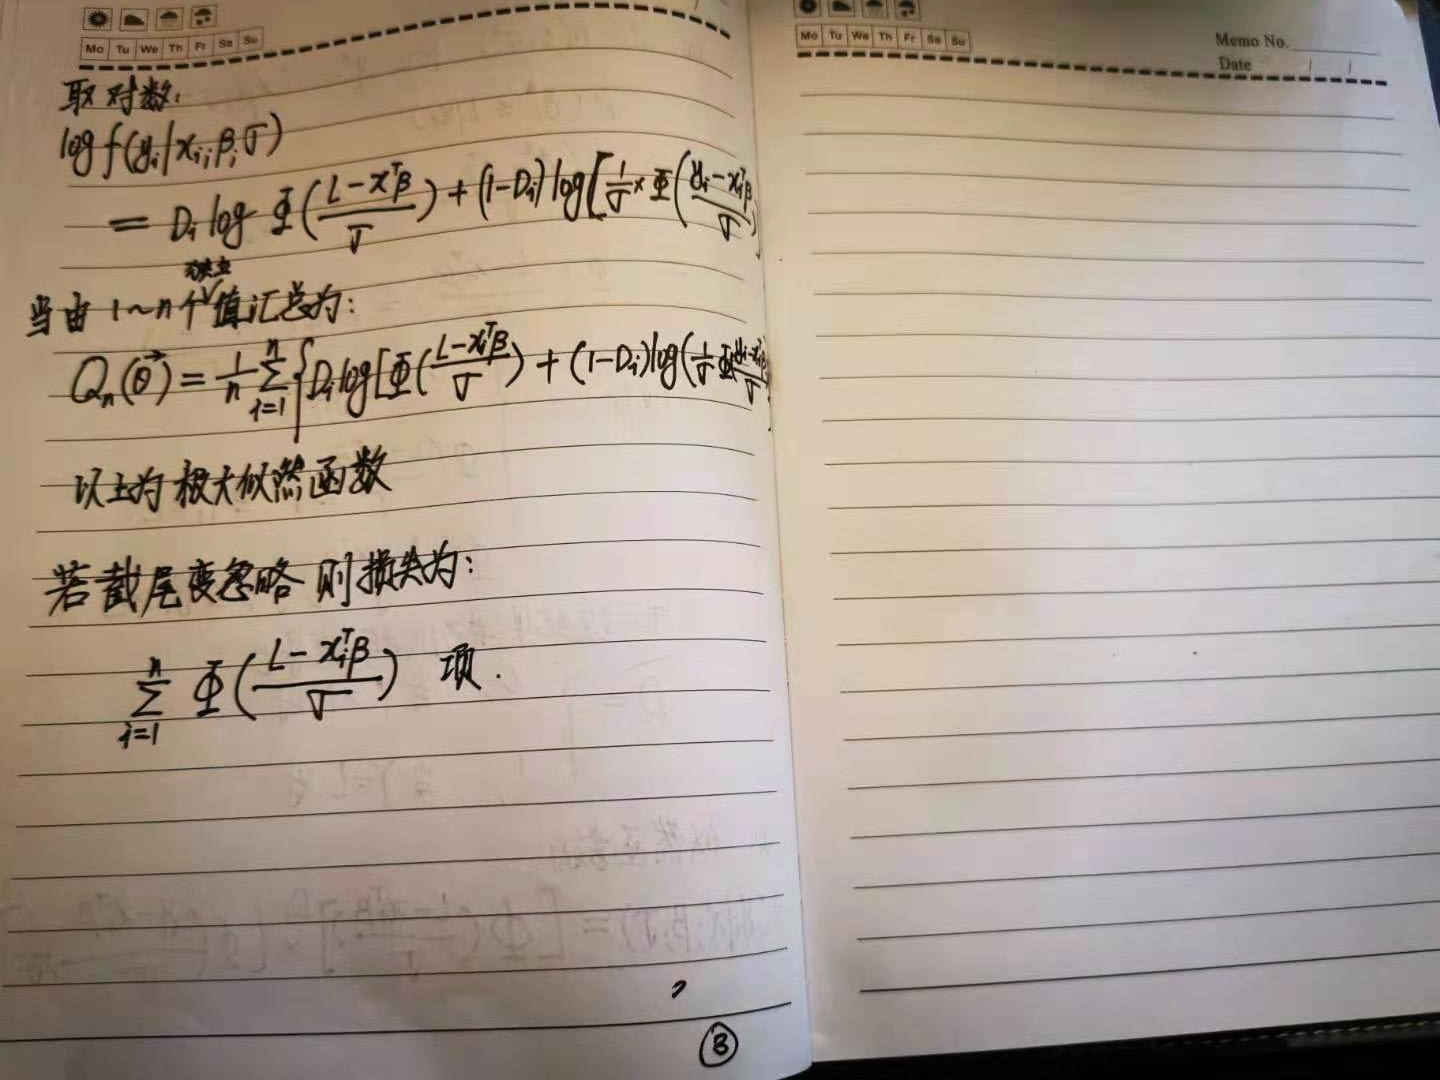 Mo Tu We Th Fr Sa Su
取对数:
log f(yᵢ|xᵢ; β, σ)
= Dᵢ log Φ((L-xᵀβ)/σ) + (1-Dᵢ) log[1/σ × Φ((yᵢ-xᵢᵀβ)/σ)
独立
当由 1~n个值汇总为:
Qₙ(θ⃗) = 1/n Σⁿᵢ₌₁ {Dᵢ log[Φ((L-xᵢᵀβ)/σ) + (1-Dᵢ) log(1/σ Φ(yᵢ-xᵢᵀβ)/σ
以上为极大似然函数
若截尾变忽略 则损失为:
Σⁿᵢ₌₁ Φ((L-xᵢᵀβ)/σ) 项.
3
Mo Tu We Th Fr Sa Su
Memo No.
Date / /